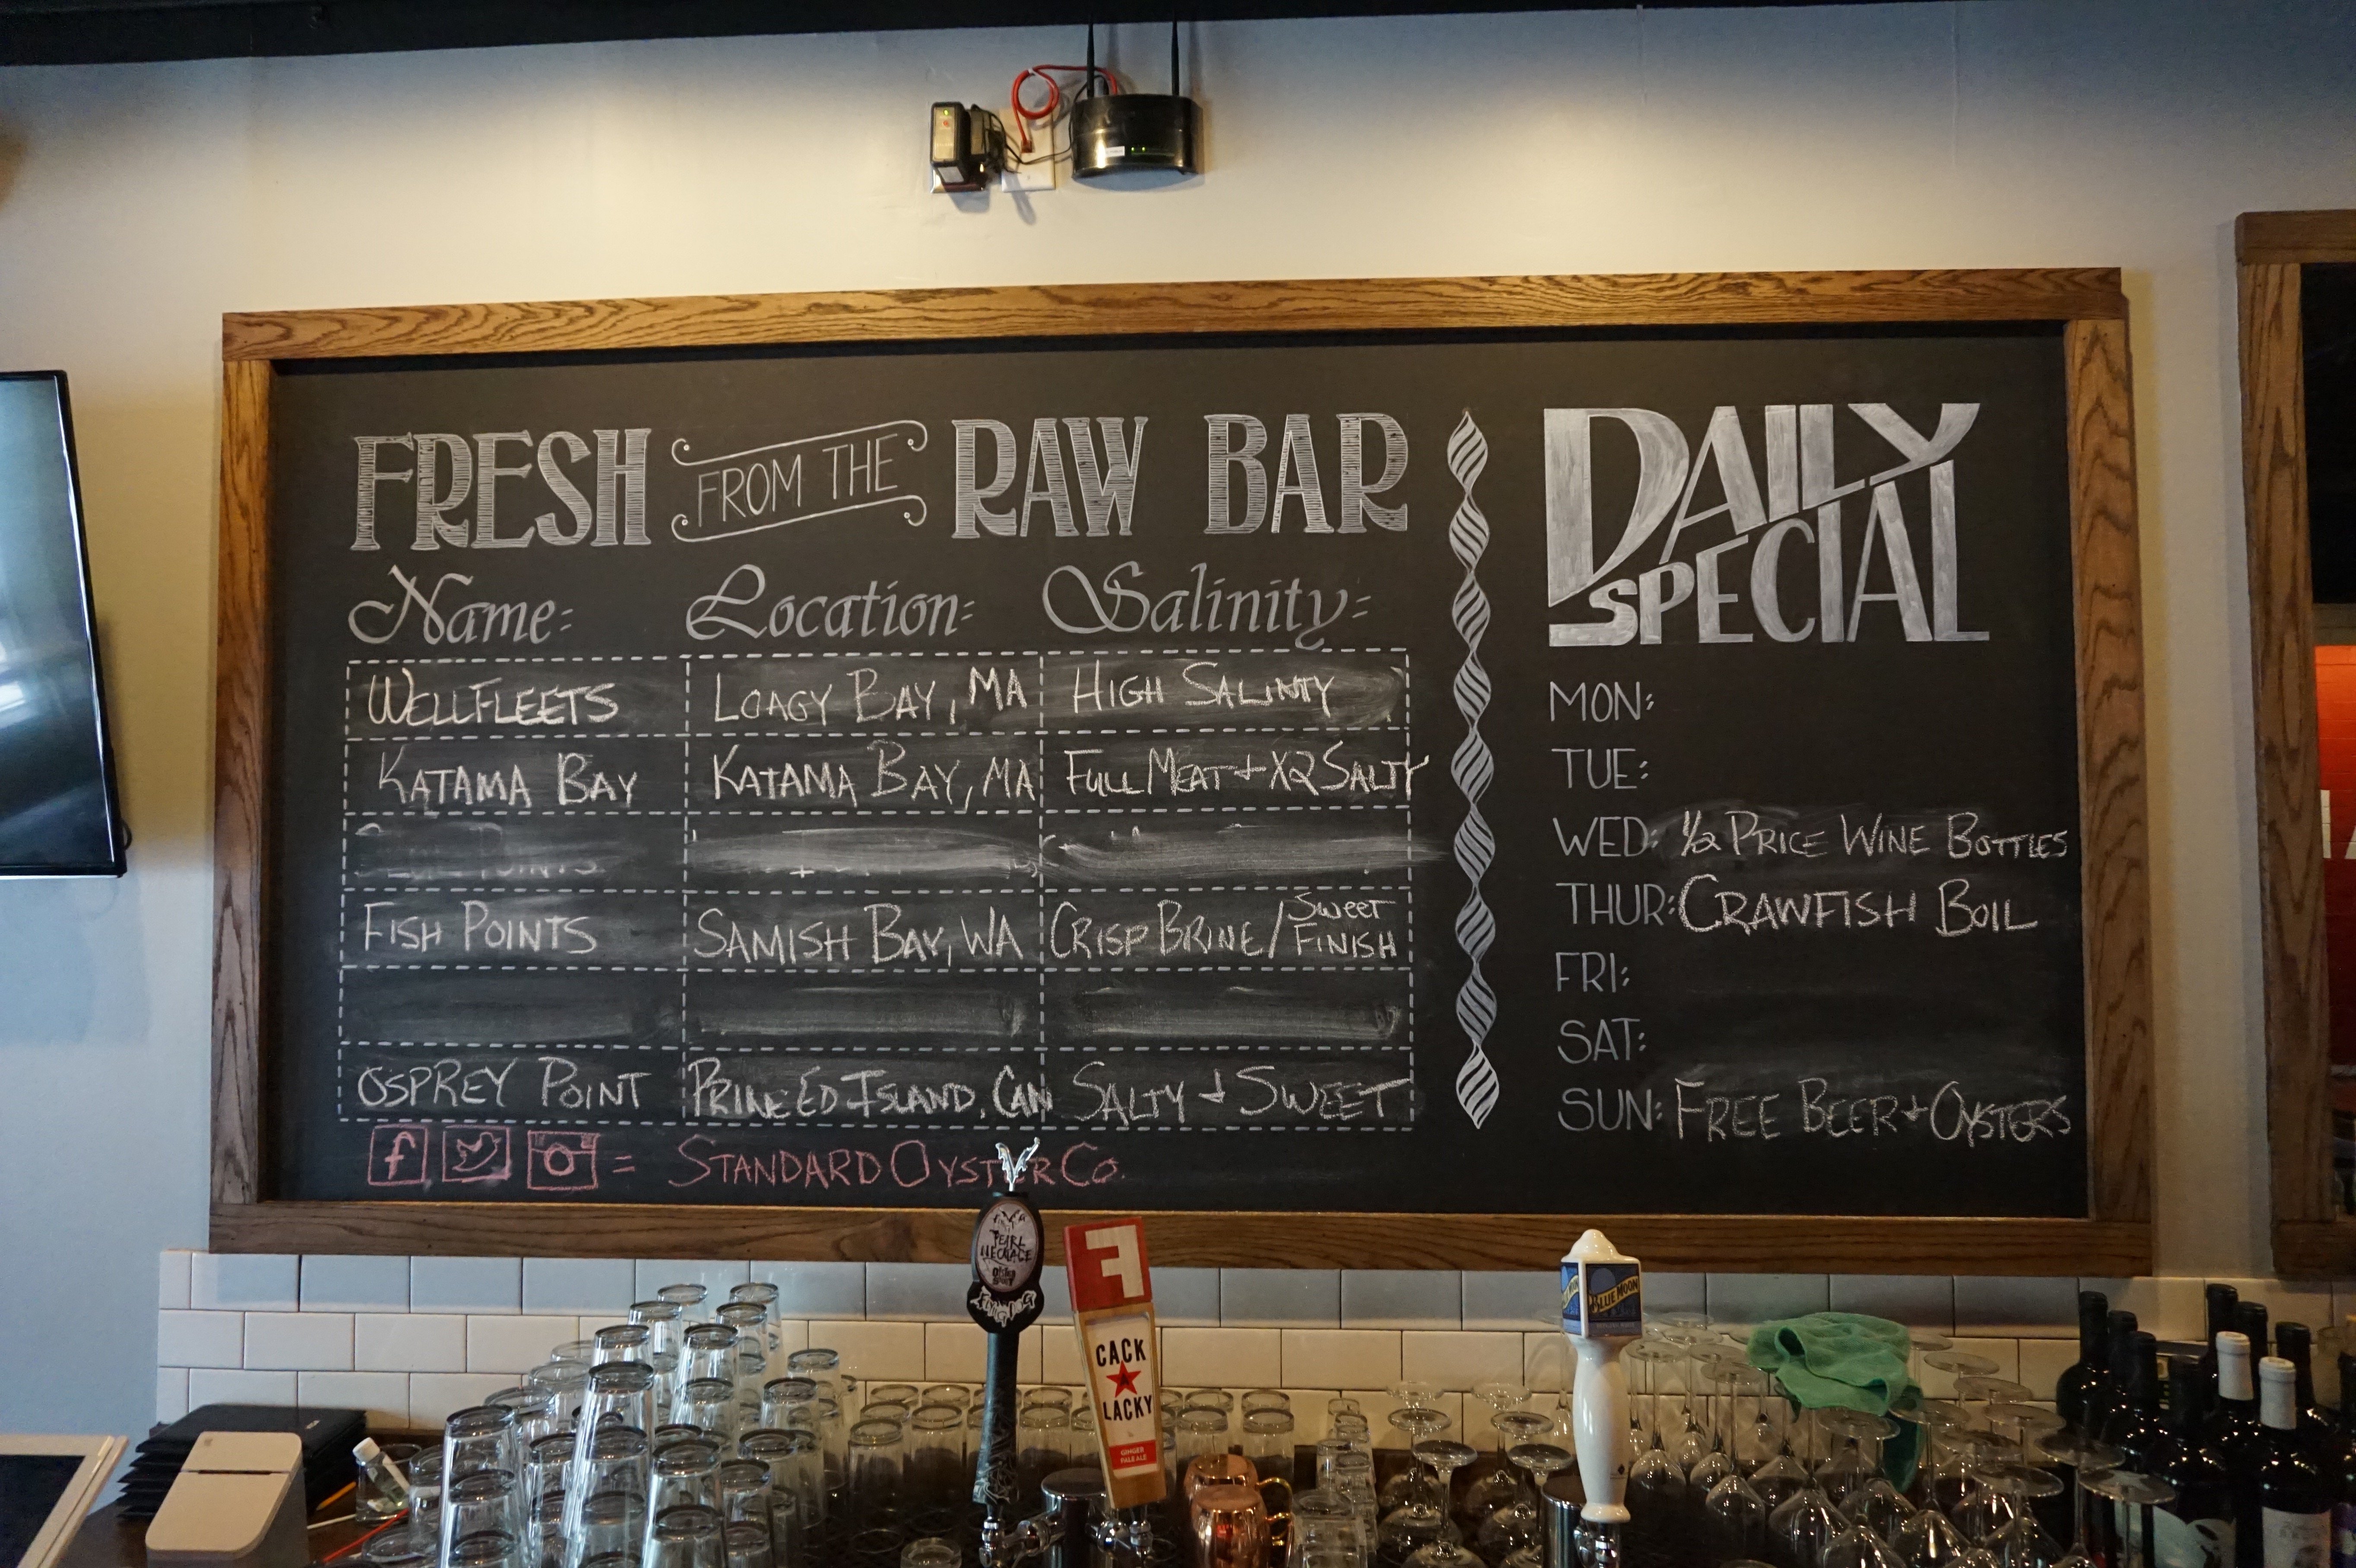 FRESH FROM THE RAW BAR
Name: Location: Salinity:
WELLFLEETS LOAGY BAY, MA HIGH SALINTY
KATAMA BAY KATAMA BAY, MA FULL MEAT + X2 SALTY
FISH POINTS SAMISH BAY, WA CRISP BRINE / SWEET FINISH
OSPREY POINT PRINCE ED ISLAND, CAN SALTY + SWEET
f = STANDARD OYSTER CO.
DAILY
SPECIAL
MON:
TUE:
WED: 1/2 PRICE WINE BOTTLES
THUR: CRAWFISH BOIL
FRI:
SAT:
SUN: FREE BEER + OYSTERS
PEARL
NECKLACE
OYSTER
STOUT
FLYING DOG
F
CACK
A
LACKY
GINGER
PALE ALE
BLUE MOON